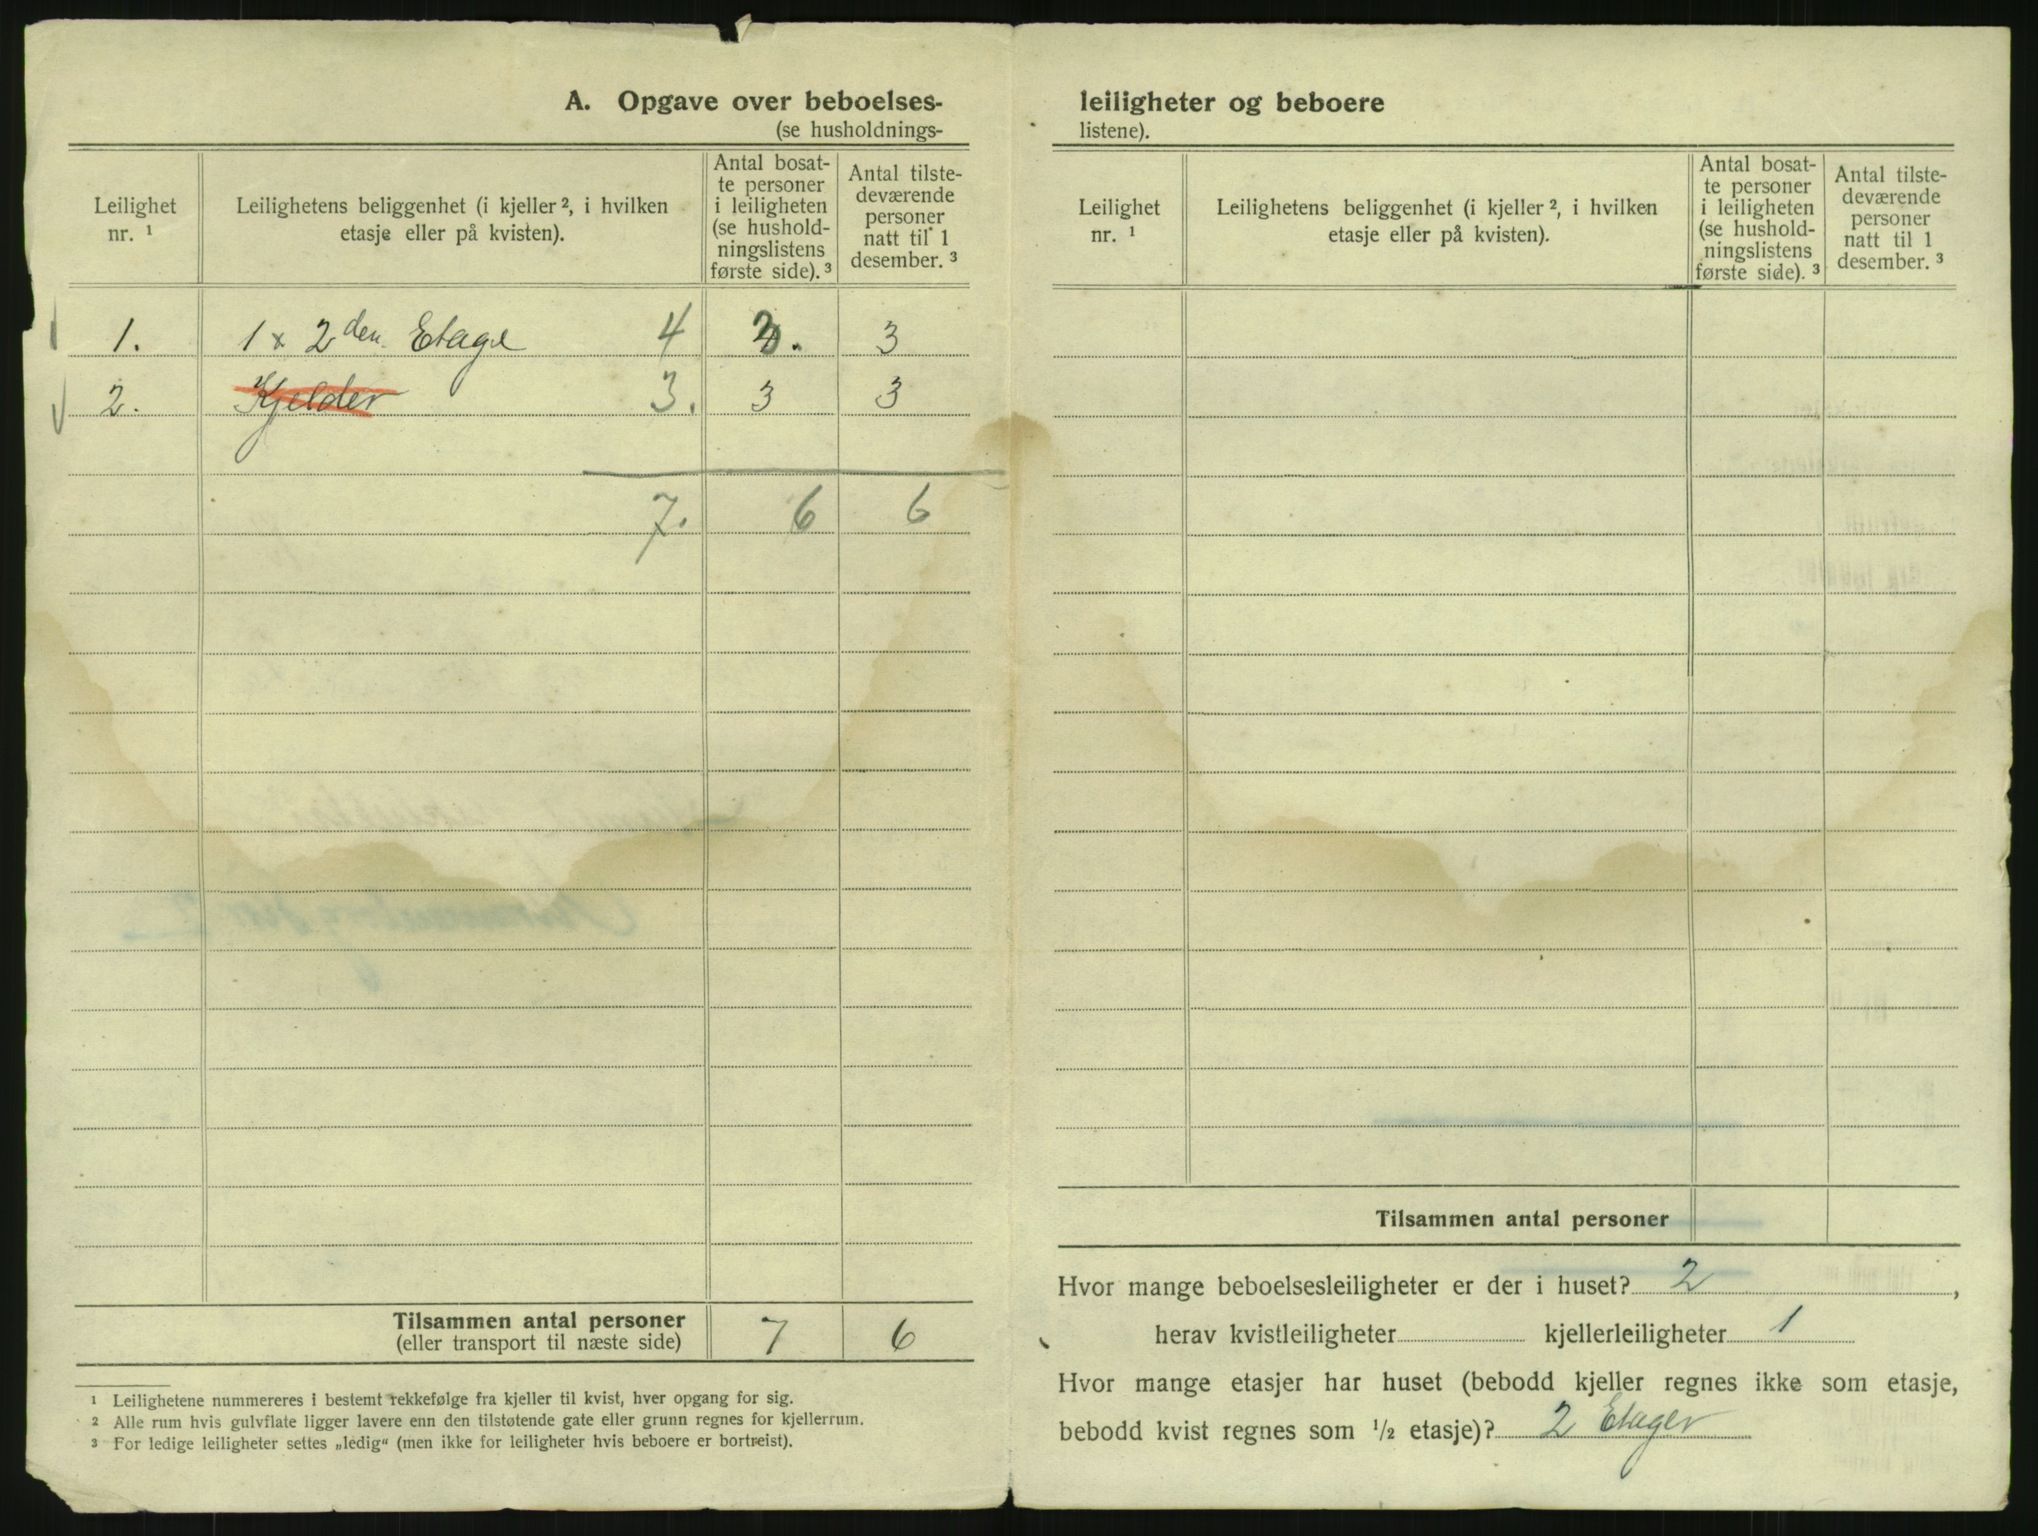 A. Opgave over beboelses-
(se husholdnings-
Leilighet
nr. ¹
Leilighetens beliggenhet (i kjeller ², i hvilken
etasje eller på kvisten).
Antal bosat-
te personer
i leiligheten
(se hushold-
ningslistens
første side). ³
Antal tilste-
deværende
personer
natt til 1
desember. ³
1. 1 x 2den Etage 4 3. 3
2. Kjelder 3. 3 3
7. 6 6
Tilsammen antal personer 7 6
(eller transport til næste side)
¹ Leilighetene nummereres i bestemt rekkefølge fra kjeller til kvist, hver opgang for sig.
² Alle rum hvis gulvflate ligger lavere enn den tilstøtende gate eller grunn regnes for kjellerrum.
³ For ledige leiligheter settes „ledig“ (men ikke for leiligheter hvis beboere er bortreist).
leiligheter og beboere
listene).
Leilighet
nr. ¹
Leilighetens beliggenhet (i kjeller ², i hvilken
etasje eller på kvisten).
Antal bosat-
te personer
i leiligheten
(se hushold-
ningslistens
første side). ³
Antal tilste-
deværende
personer
natt til 1
desember. ³
Tilsammen antal personer
Hvor mange beboelsesleiligheter er der i huset? 2,
herav kvistleiligheter kjellerleiligheter 1
Hvor mange etasjer har huset (bebodd kjeller regnes ikke som etasje,
bebodd kvist regnes som ½ etasje)? 2 Etager